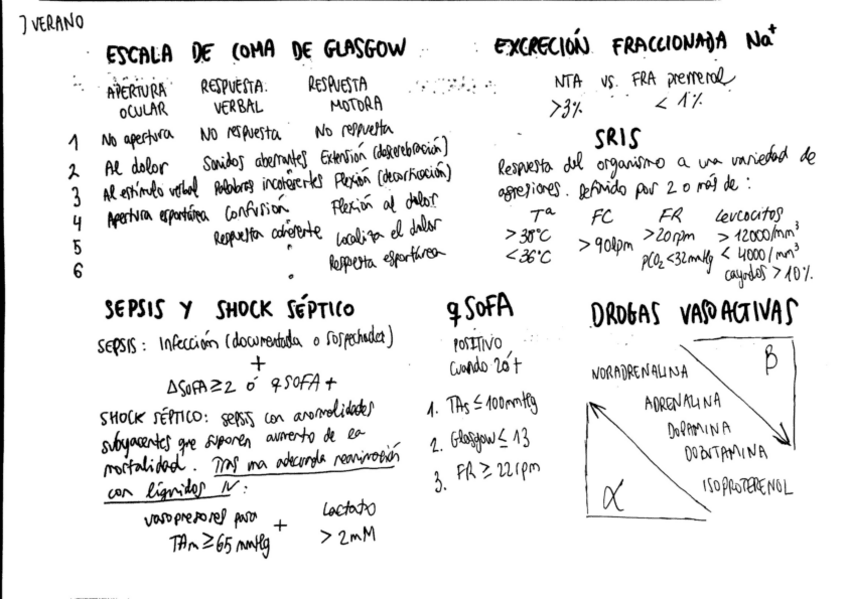 ] VERANO
ESCALA DE COMA DE GLASGOW
APERTURA OCULAR RESPUESTA VERBAL RESPUESTA MOTORA
1 No apertura No respuesta No respuesta
2 Al dolor Sonidos aberrantes Extensión (descerebración)
3 Al estímulo verbal Palabras incoherentes Flexión (decorticación)
4 Apertura espontánea Confusión Flexión al dolor
5 Respuesta coherente Localiza el dolor
6 Respuesta espontánea
EXCRECIÓN FRACCIONADA Na⁺
NTA vs. FRA prerrenal
>3% < 1%
SRIS
Respuesta del organismo a una variedad de
agresiones. Definido por 2 o más de:
Tª FC FR Leucocitos
>38ºC >90lpm >20rpm >12000/mm³
<36ºC pCO₂<32mmHg < 4000/mm³
cayados >10%
SEPSIS Y SHOCK SÉPTICO
SEPSIS: Infección (documentada o sospechada)
+
ΔSOFA≥2 ó qSOFA+
SHOCK SÉPTICO: sepsis con anormalidades
subyacentes que suponen aumento de la
mortalidad. Tras una adecuada reanimación
con líquidos IV:
vasopresores para + Lactato
TAm≥65 mmHg > 2mM
qSOFA
POSITIVO
Cuando 2ó+
1. TAs≤100mmHg
2. Glasgow≤13
3. FR≥22rpm
DROGAS VASOACTIVAS
β
NORADRENALINA
ADRENALINA
DOPAMINA
DOBUTAMINA
ISOPROTERENOL
α